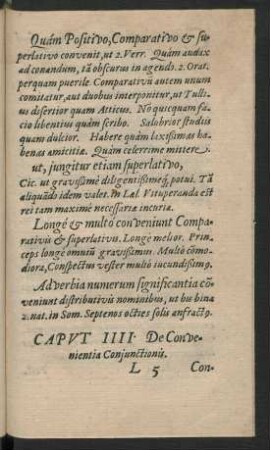 Quàm Positivo, Comparativo & su-
perlativo convenit, ut 2. Verr. Quàm audax
ad conandum, tā obscurus in agendo. 2. Orat.
perquam puerile. Comparativū autem unum
comitatur, aut duobus interponitur, ut Tulli-
us disertior quam Atticus. Nō quicquam fa-
cio libentius quàm scribo. Salubrior studiis
quam dulcior. Habere quàm laxissimas ha-
benas amicitiæ. Quàm celerrime mittere
ut, jungitur etiam superlativo,
Cic. ut gravissimè diligentissimeq́; potui. Tā
aliquādo idem valet. In Læl. Vituperanda est
rei tam maximè necessariæ incuria.
Longè & multò conveniunt Compa-
rativis & superlativis. Longè melior. Prin-
ceps longè omniū gravissimus. Multò cōmo-
diora, Conspectus vester multò jucundissim9.
Adverbia numerum significantia cō-
veniunt distributivis nominibus, ut bis bina
2. nat. in Som. Septenos octies solis anfract9.
CAPVT IIII. De Conve-
nientia Conjunctionis.
L 5 Con-